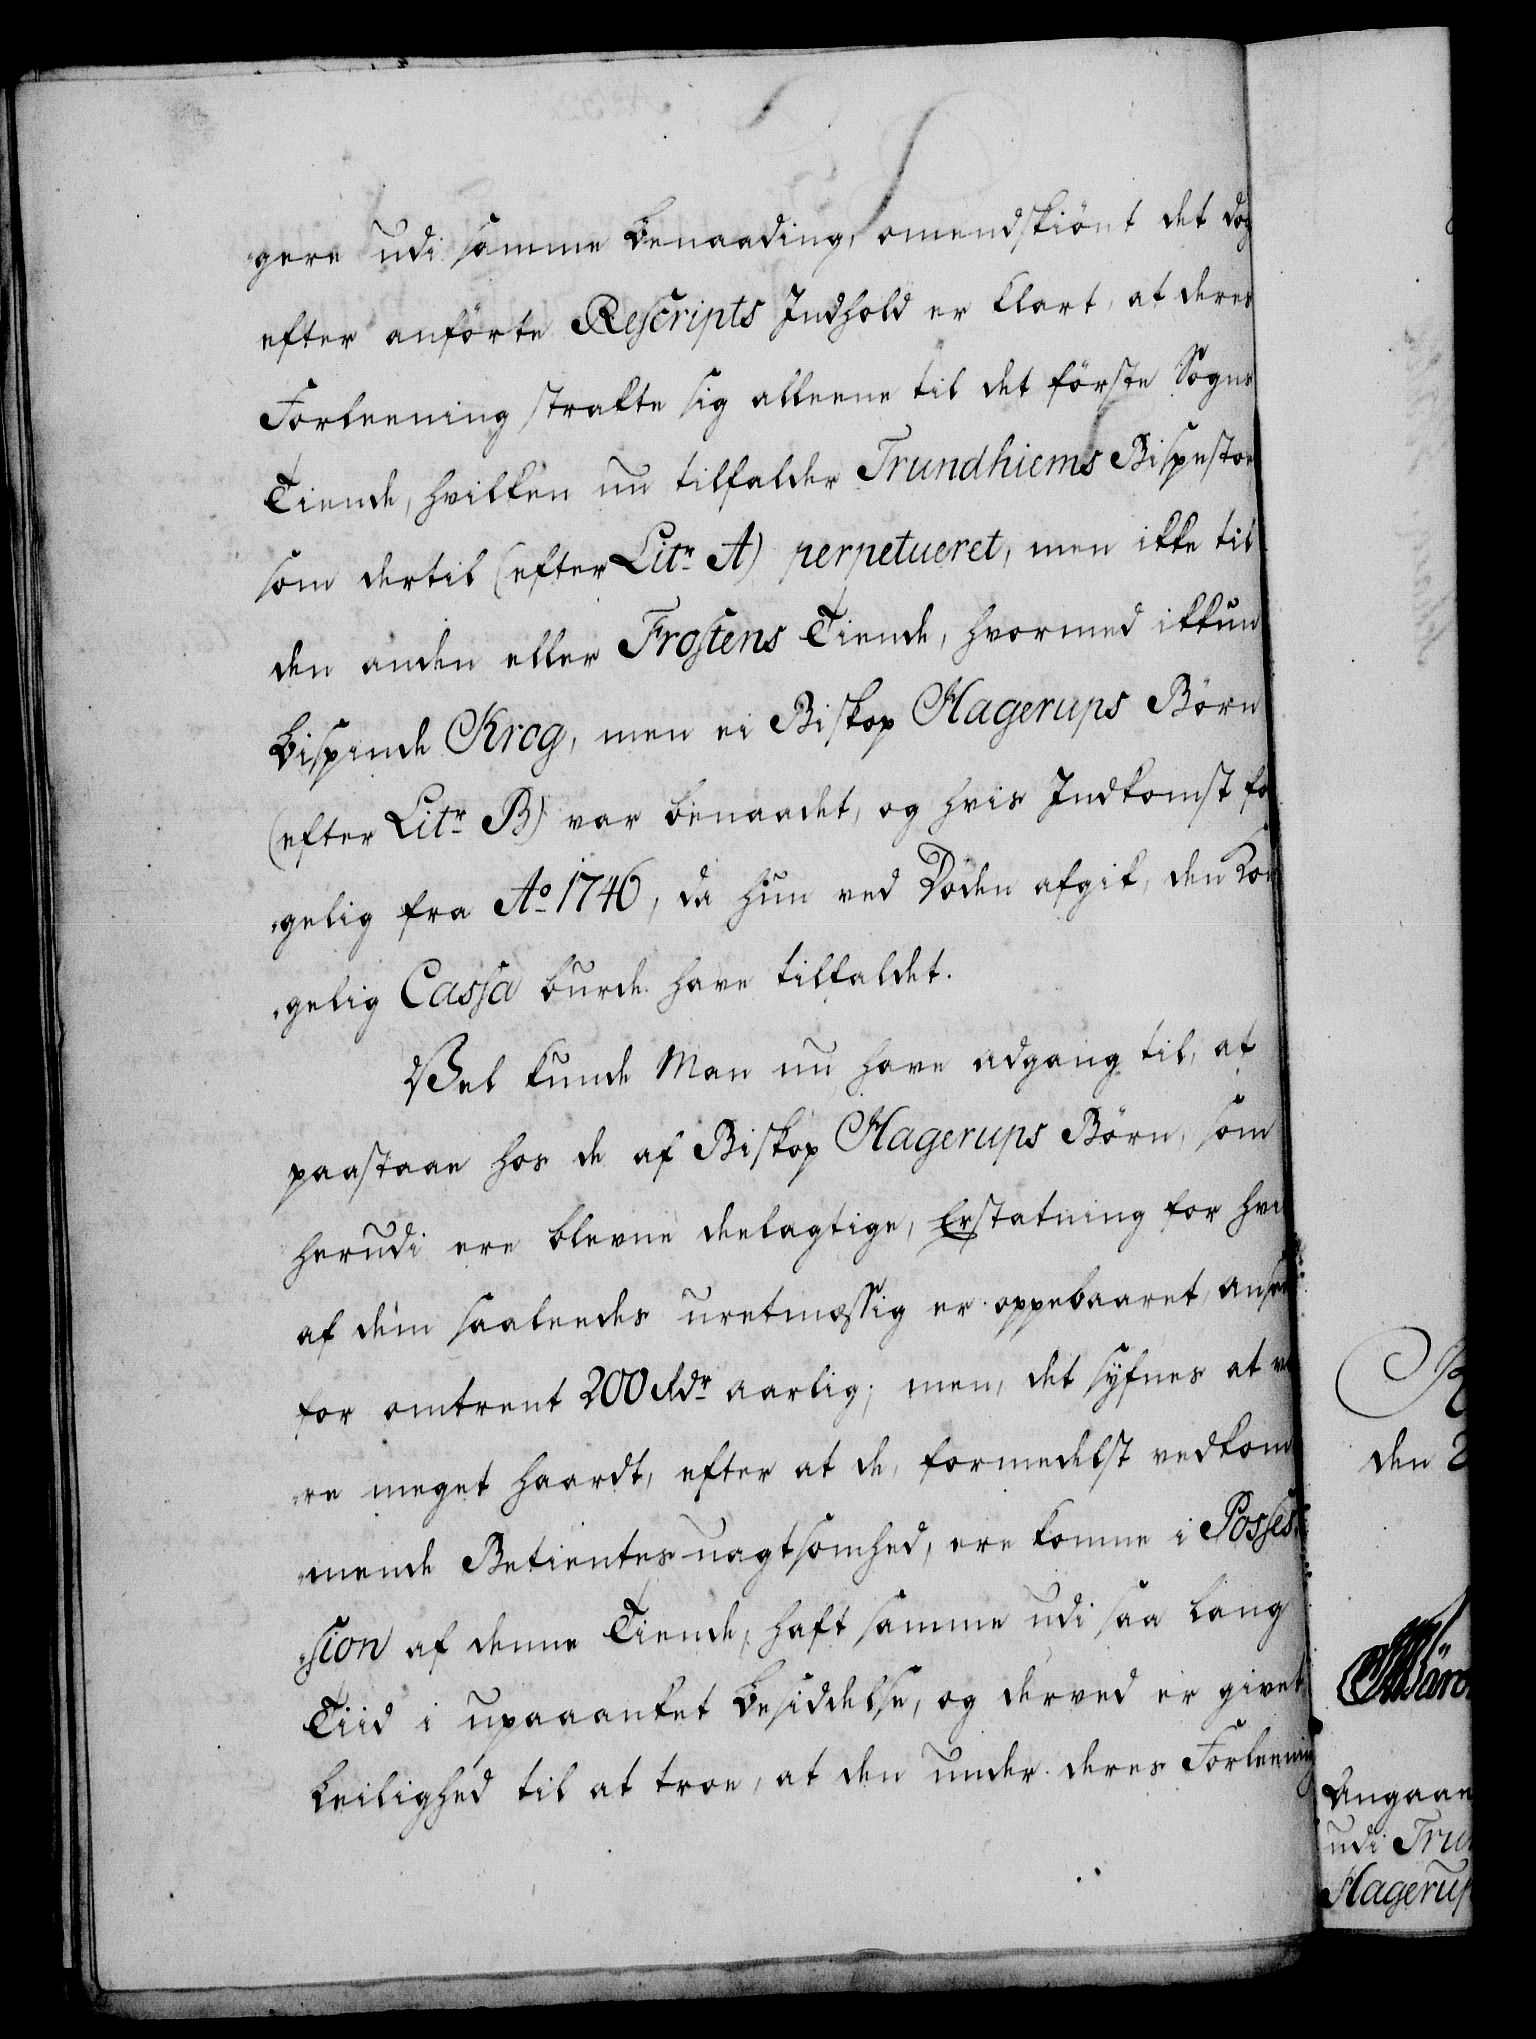 gere udi samme benaading, omendskiönt det dog
efter anförte Rescripts Indhold er klart, at deres
Forleening strakte sig alleene til det förste Sogns
Tiende, hvilken nu tilfalder Trundhiems Bispestoel
som dertil (efter Litr A) perpetueret, men ikke til
den anden eller Frostens Tiende, hvormed ikkun
bispinde Krog, men ei Biskop Hagerups Börn
(efter Litr B) var benaadet, og hvis Indkomst fö
gelig fra Ao 1746, da hun ved Döden afgik, den Kon
gelig Cassa burde have tilfaldet.
Vel kunde Man nu have adgang til, at
paastaae hos de af Biskop Hagerups Börn, som
herudi ere blevne deelagtige, Erstatning for hvi
af dem saaleedes uretmæssig er oppebaaret, ansee
for omtrent 200 Rdr aarlig; men, det syfnes at væ
re meget haardt, efter at de, formedelst vedkom
mende Betientes uagtsomhed, ere komne i Posses
sion af denne Tiende, haft samme udi saa lang
Tiid i upaaanket besiddelse, og derved er givet
leilighed til at troe, at den under deres Forleening
den
Angaae
udi Trun
Hagerup